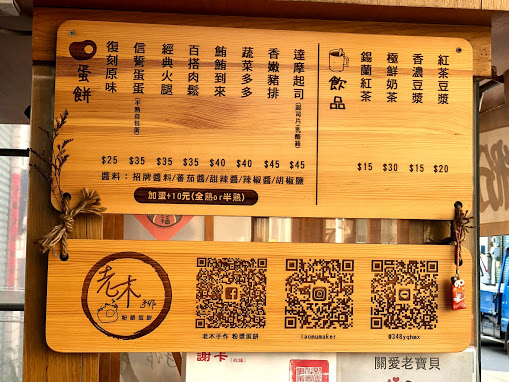 蛋餅
復刻原味 $25
信誓蛋蛋(半熟荷包蛋) $35
經典火腿 $35
百搭肉鬆 $35
鮪鮪到來 $40
蔬菜多多 $40
香嫩豬排 $45
達摩起司(起司片/乳酪絲) $45
飲品
錫蘭紅茶 $15
極鮮奶茶 $30
香濃豆漿 $15
紅茶豆漿 $20
醬料：招牌醬料/番茄醬/甜辣醬/辣椒醬/胡椒鹽
加蛋+10元(全熟or半熟)
福
老木手作
粉漿蛋餅
老木手作 粉漿蛋餅
laomumaker
@348yqhmx
謝卡
關愛老寶貝